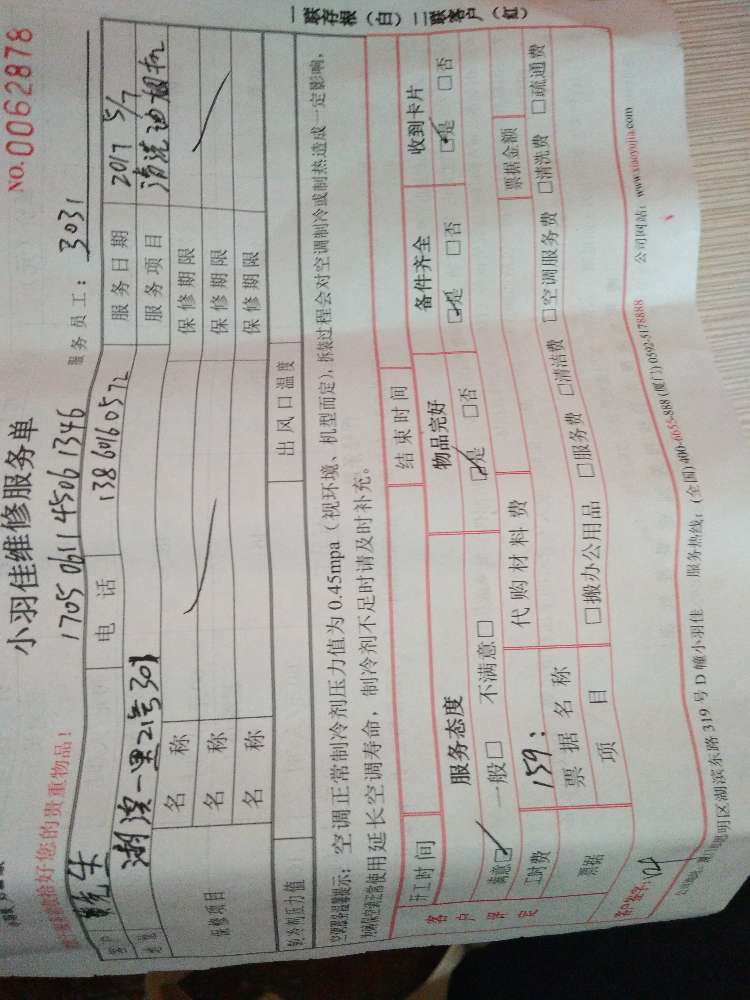 小羽佳维修服务单
NO.0062878
1705 0611 4506 1346
服务员工: 3031
一联存根(白) 二联客户(红)
拾好您的贵重物品!
客户
电话 13860160572
服务日期 2017 5/7
湖滨一里21号301
服务项目 清洗油烟机
保修项目
名称 保修期限
名称 保修期限
名称 保修期限
制冷剂压力值 出风口温度
空调部分温馨提示: 空调正常制冷剂压力值为 0.45mpa(视环境、机型而定), 拆装过程会对空调制冷或制热造成一定影响,
为确保空调正常使用延长空调寿命, 制冷剂不足时请及时补充。
客户评定
开工时间 结束时间
服务态度 物品完好 备件齐全 收到卡片
满意☑ 一般□ 不满意□ ☑是 □否 ☑是 □否 ☑是 □否
工时费 159: 代购材料费
票据 票据名称 票据金额
项目 □搬办公用品 □服务费 □清洁费 □空调服务费 □清洗费 □疏通费
客户签字:
明区湖滨东路 319 号 D 幢小羽佳 服务热线: (全国) 400-6655-888 (厦门) 0592-5178888 公司网站: www.xiaoyujia.com